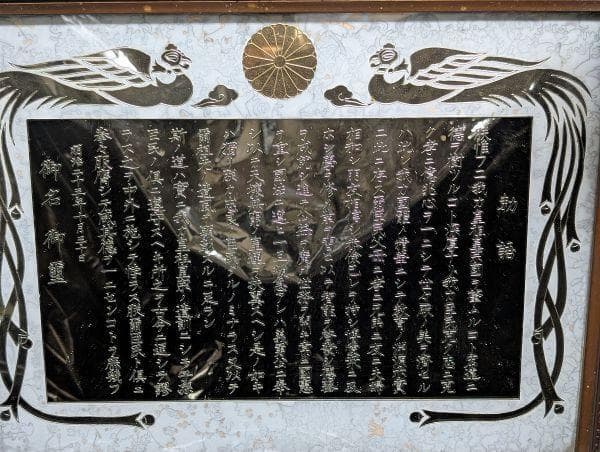 勅語
朕惟フニ我カ皇祖皇宗國ヲ肇ムルコト宏遠ニ
德ヲ樹ツルコト深厚ナリ我カ臣民克ク忠ニ克
ク孝ニ億兆心ヲ一ニシテ世世厥ノ美ヲ濟セル
ハ此レ我カ國體ノ精華ニシテ教育ノ淵源亦實
ニ此ニ存ス爾臣民父母ニ孝ニ兄弟ニ友ニ夫婦
相和シ朋友相信シ恭儉己レヲ持シ博愛衆ニ及
ホシ學ヲ修メ業ヲ習ヒ以テ智能ヲ啓發シ德器
ヲ成就シ進テ公益ヲ廣メ世務ヲ開キ常ニ國憲
ヲ重シ國法ニ遵ヒ一旦緩急アレハ義勇公ニ奉
シ以テ天壤無窮ノ皇運ヲ扶翼スヘシ是ノ如キ
ハ獨リ朕カ忠良ノ臣民タルノミナラス又以テ
爾祖先ノ遺風ヲ顯彰スルニ足ラン
斯ノ道ハ實ニ我カ皇祖皇宗ノ遺訓ニシテ子孫
臣民ノ俱ニ遵守スヘキ所之ヲ古今ニ通シテ謬
ラス之ヲ中外ニ施シテ悖ラス朕爾臣民ト俱ニ
拳々服膺シテ咸其德ヲ一ニセンコトヲ庶幾フ
明治二十三年十月三十日
御名御璽